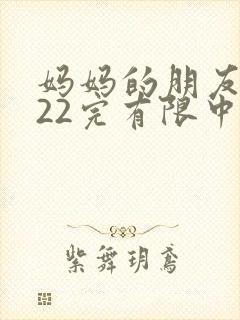 妈妈的朋友
22完有限中
紫舞玥鸢